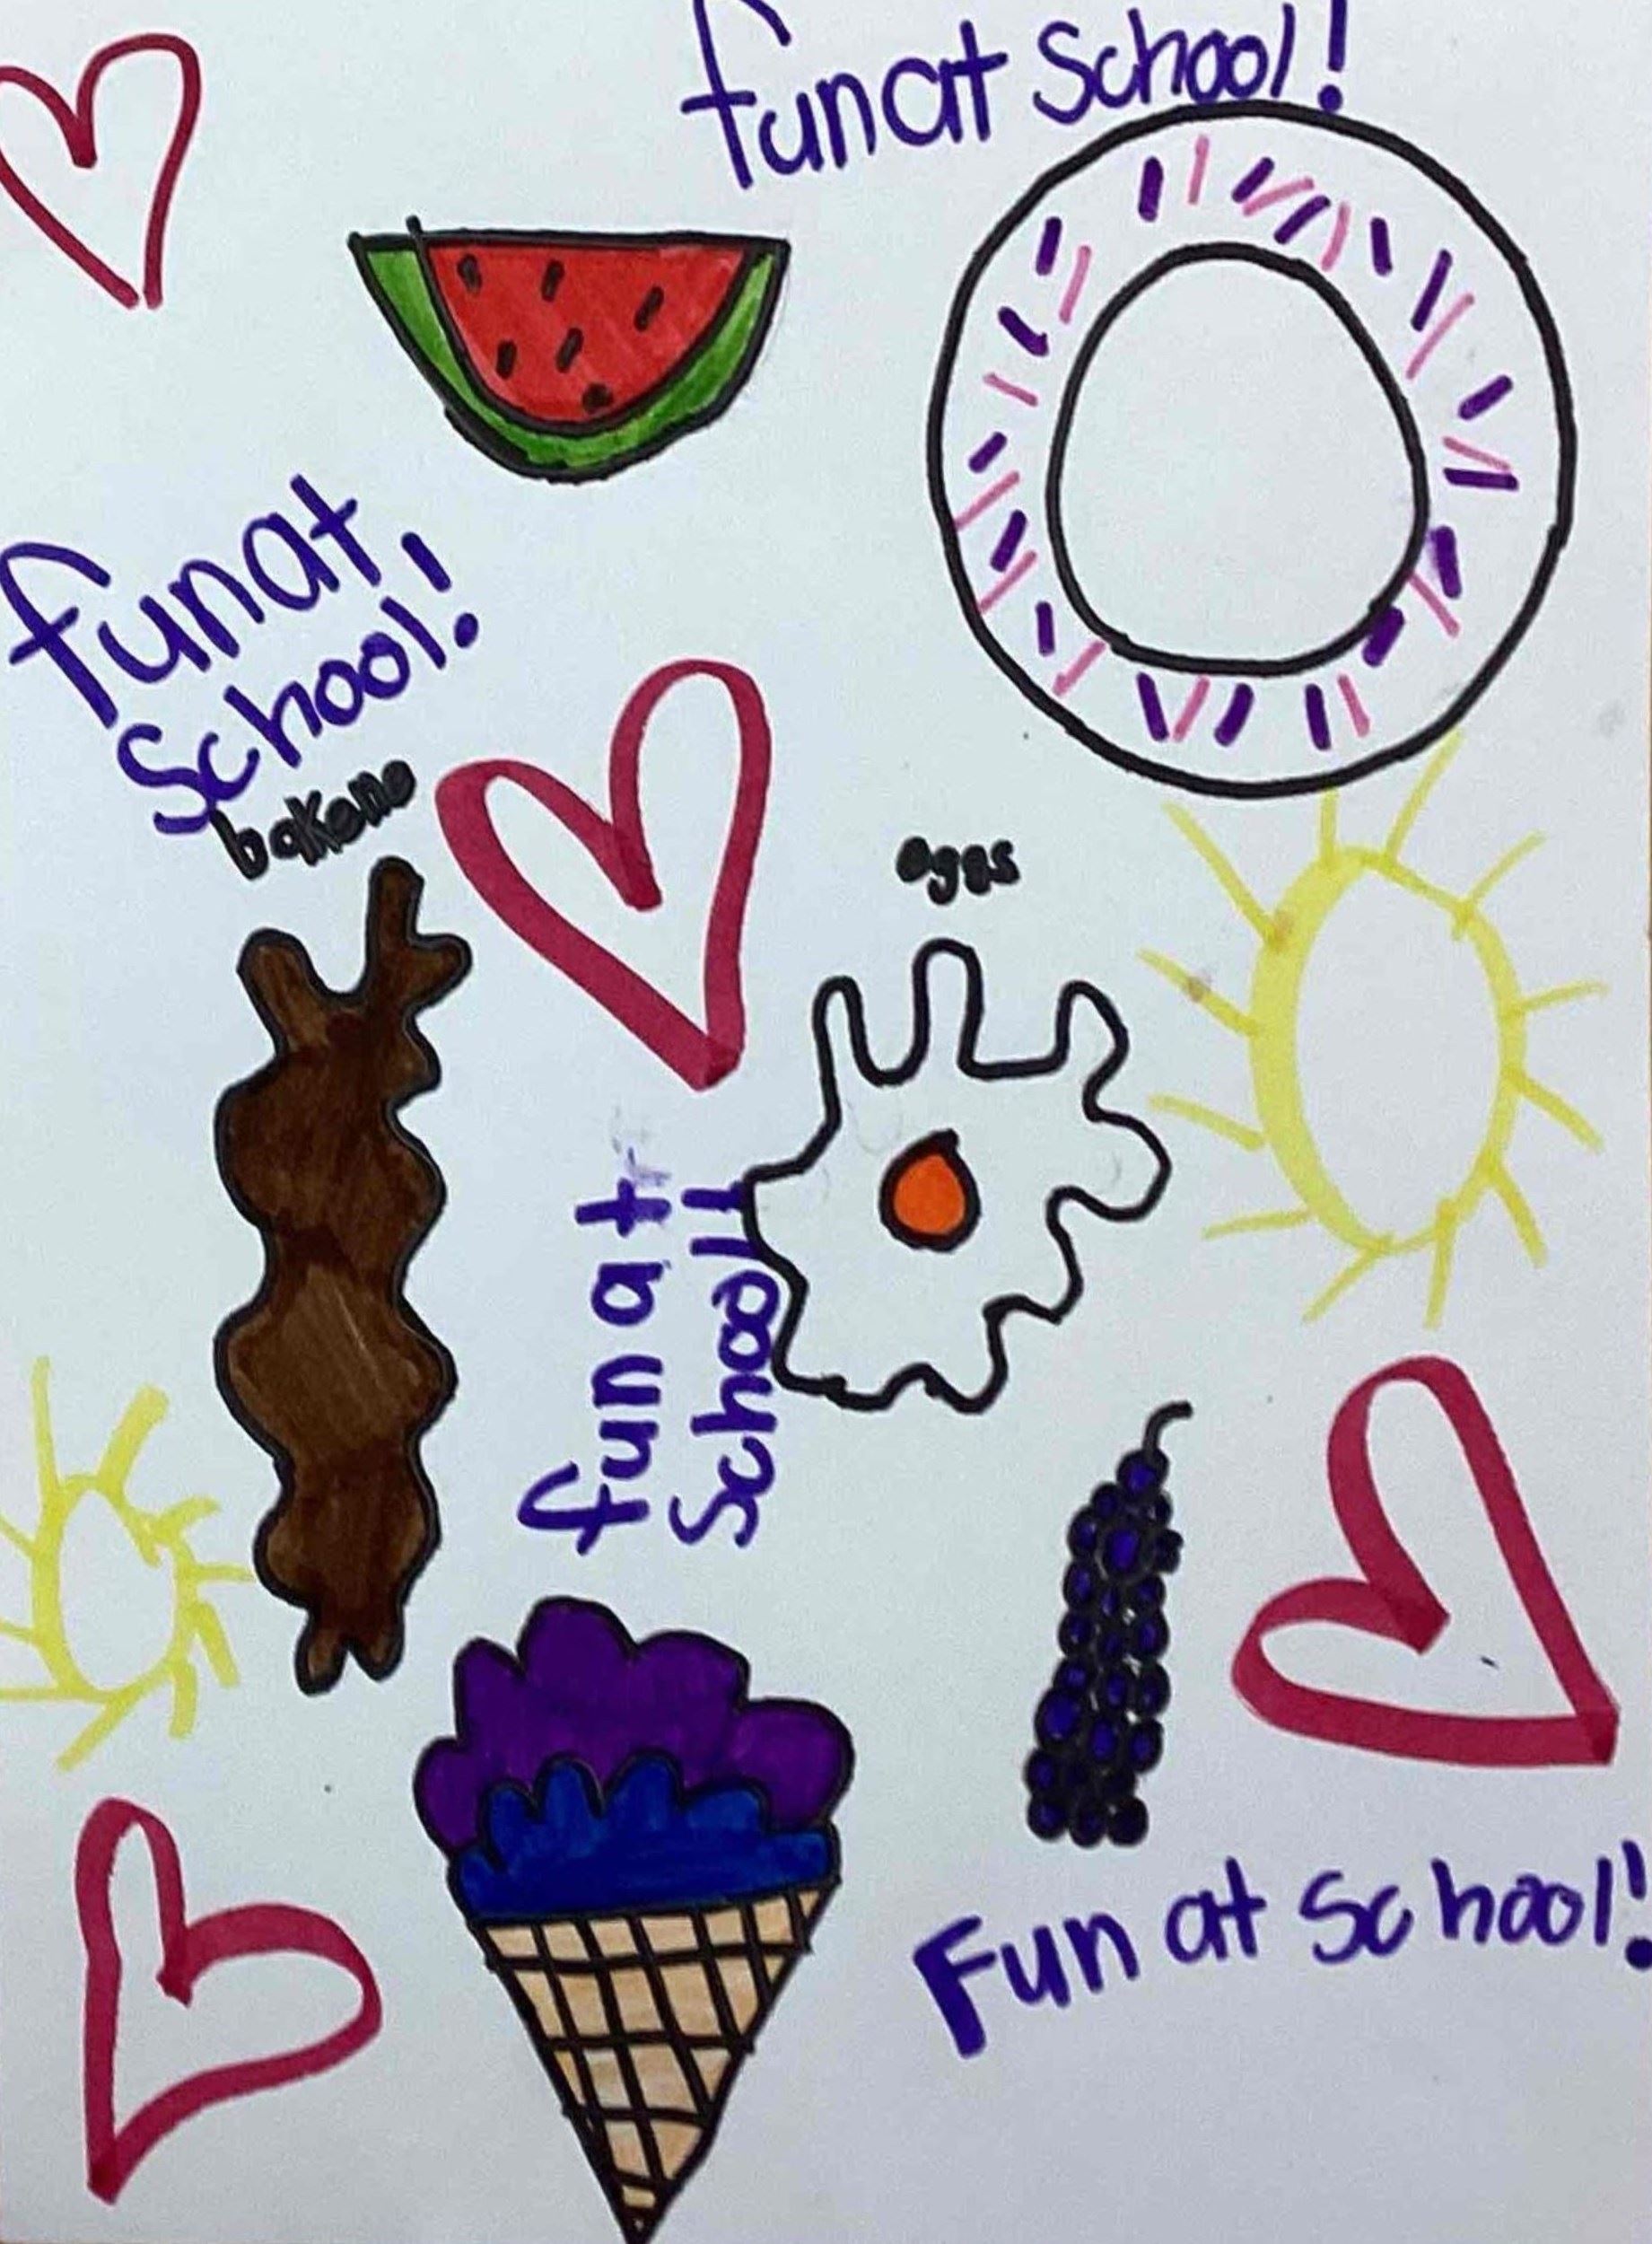 fun at school!
fun at
school!
bakene
eggs
fun at
school!
Fun at school!